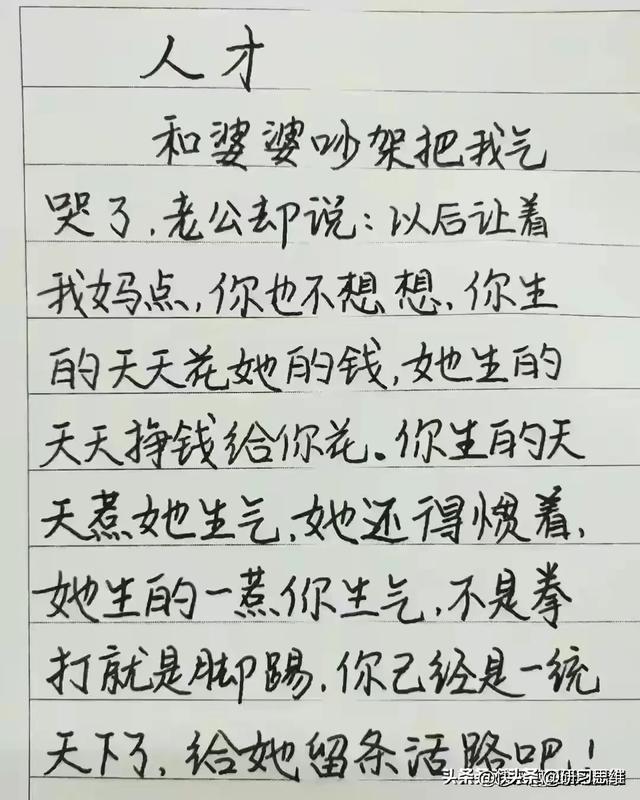 人才
和婆婆吵架把我气
哭了，老公却说：以后让着
我妈点，你也不想想，你生
的天天花她的钱，她生的
天天挣钱给你花。你生的天
天惹她生气，她还得惯着，
她生的一惹你生气，不是拳
打就是脚踢，你已经是一统
天下了，给她留条活路吧！